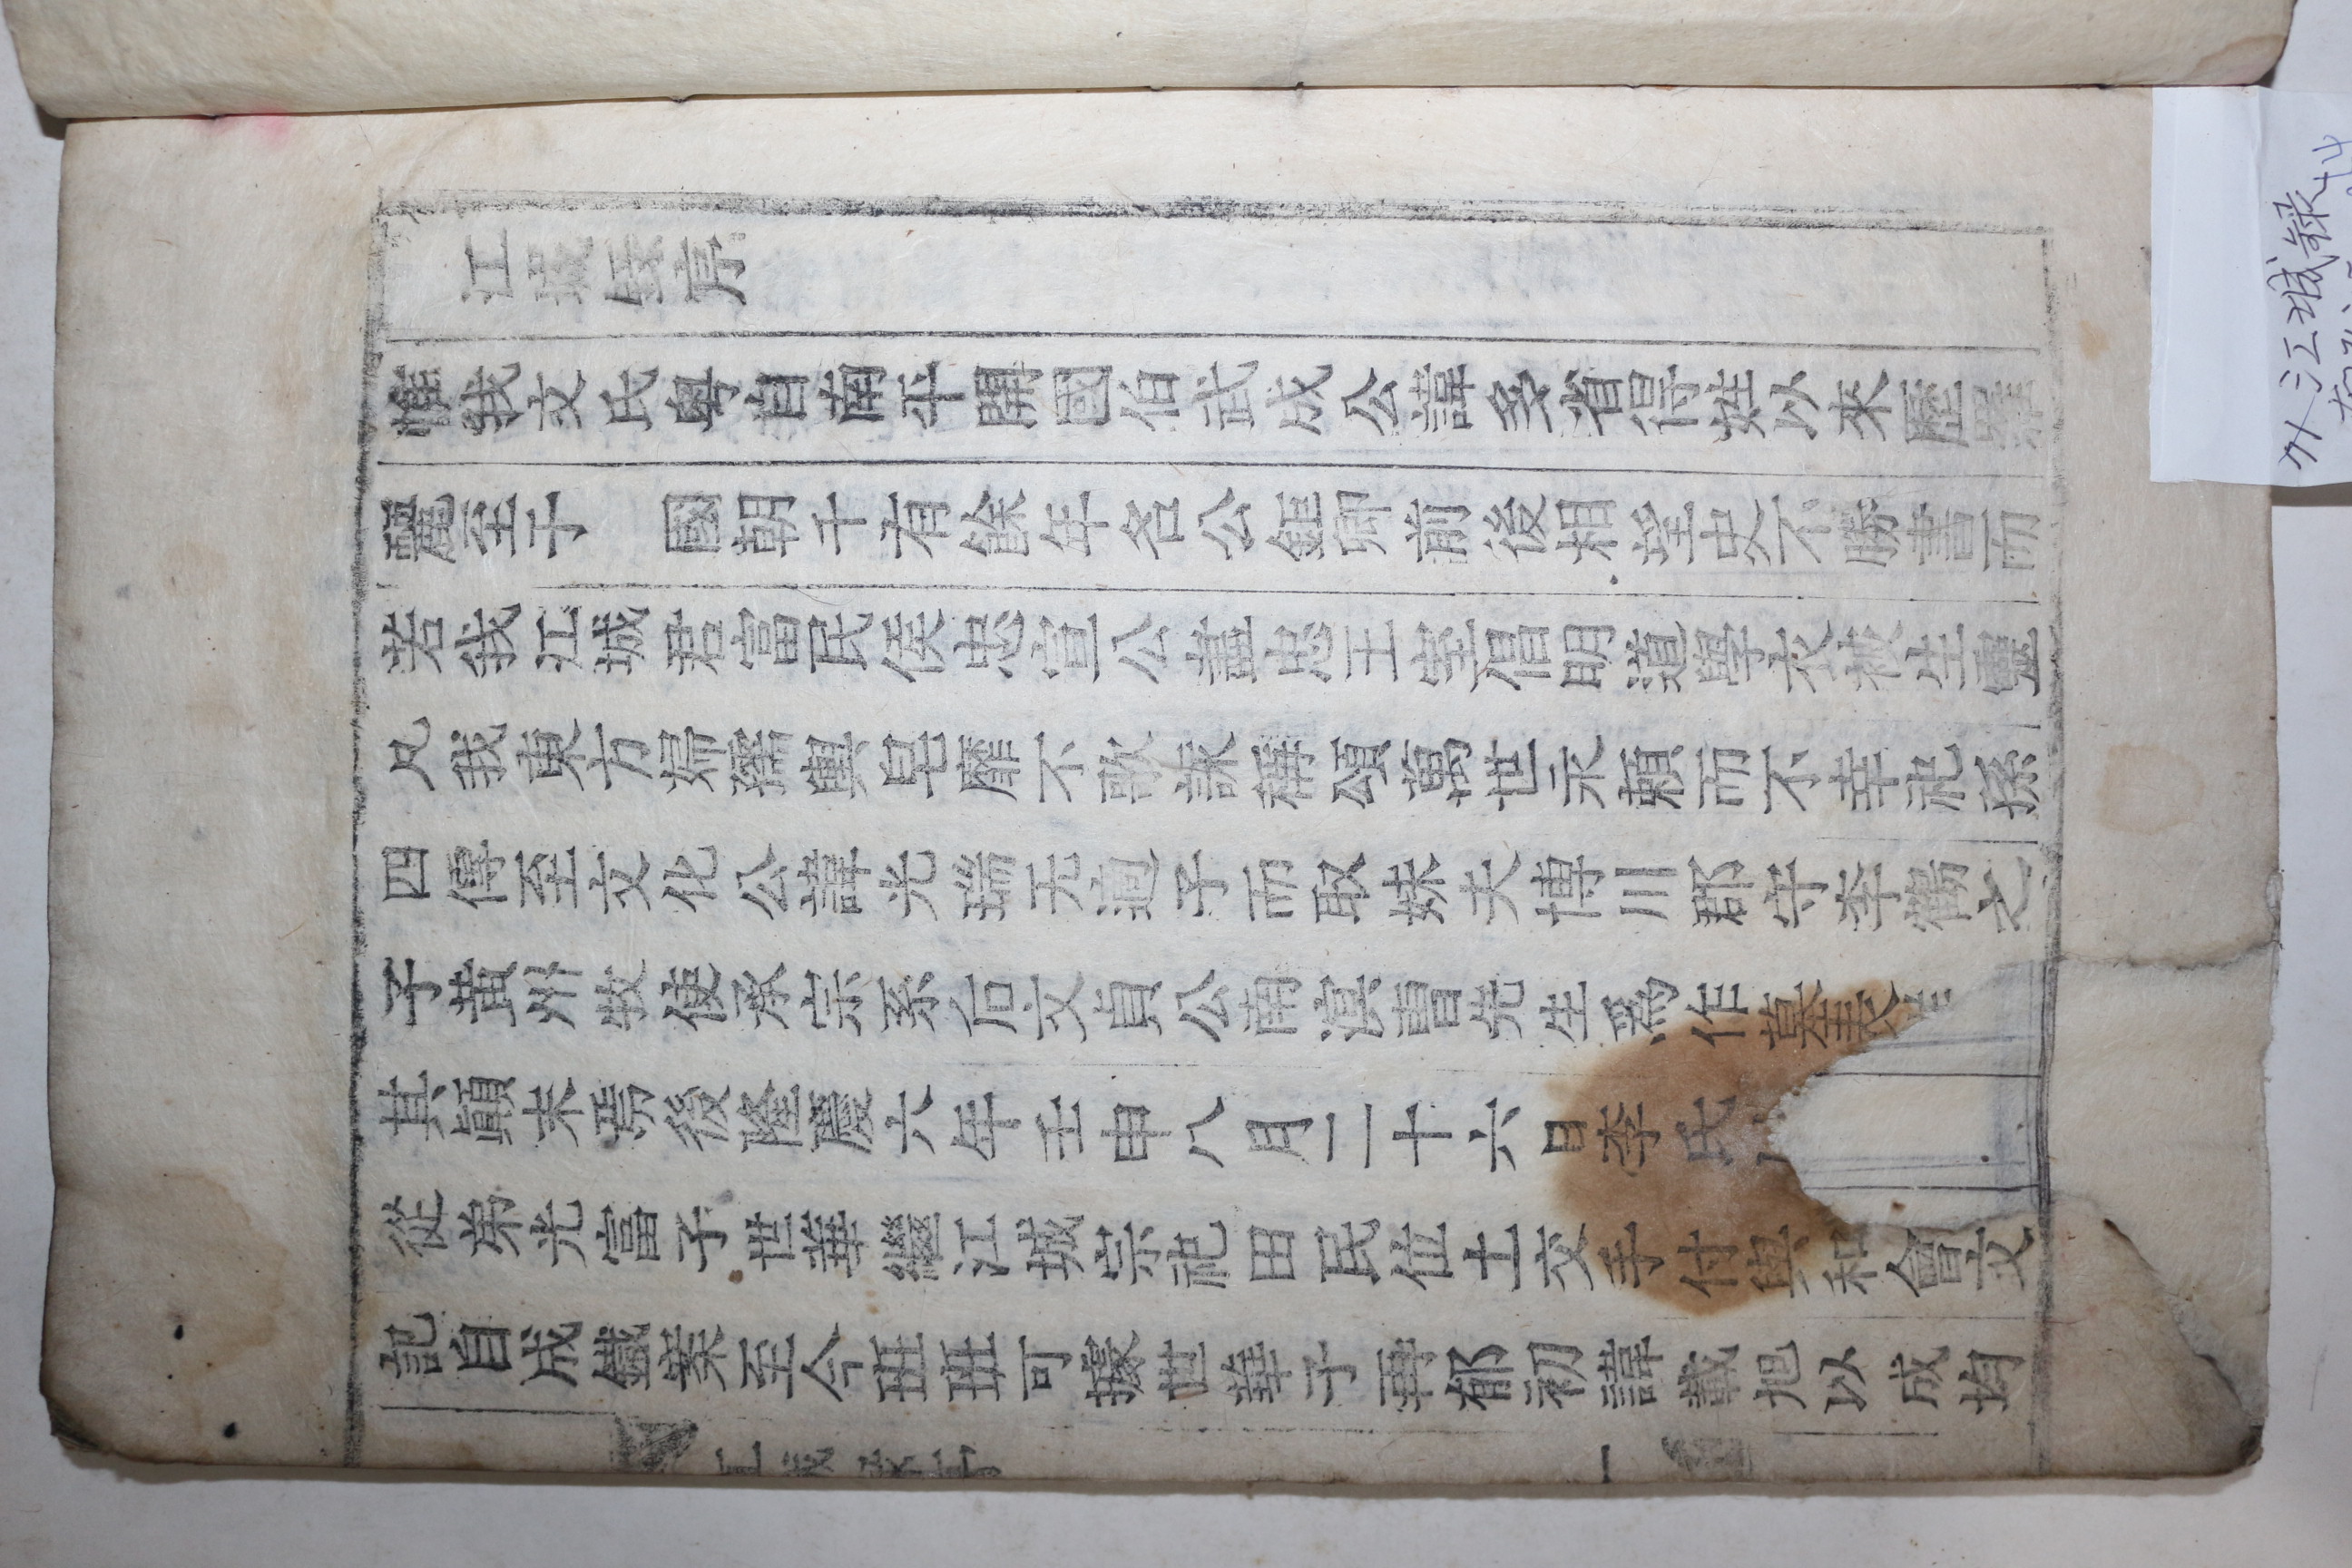 江城錄序
惟我文氏粤自南平開國伯武成公諱多省得姓以來歷羅
麗至于 國朝千有餘年名公鉅卿前後相望史不勝書而
若我江城君富民侯忠宣公盡忠王室倡明道學衣被生靈
凡我東方婦孺輿皂靡不歌詠稱頌萬世永賴而不幸祀孫
四傳至文化公諱光瑞无適子而取妹夫博川郡守李鶴之
子黃州牧使承宗系后文貞公南冥曺先生爲作墓表
其顚末焉後隆慶六年壬申八月二十六日李氏
從弟光富子世華繼江城宗祀田民位土交手付與和會文
記自成鐵案至今班班可據世華子尉初諱載旭以成均
江城錄序 一
外江城錄